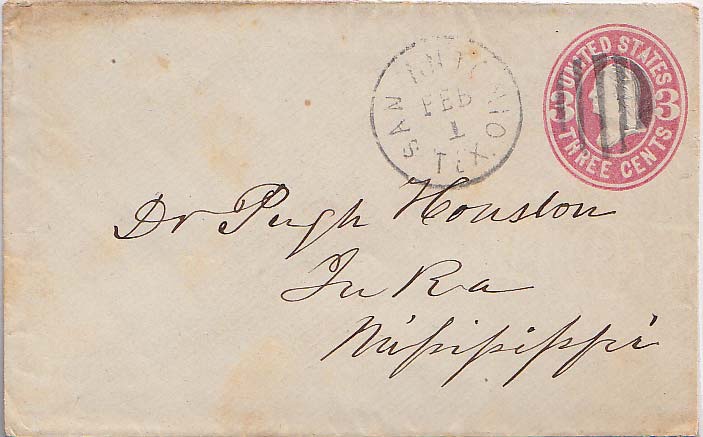 SAN ANTONIO
FEB
1
TEX.
UNITED STATES
3 3
THREE CENTS
Dr Pugh Houston
Iu Ka
Missisippi